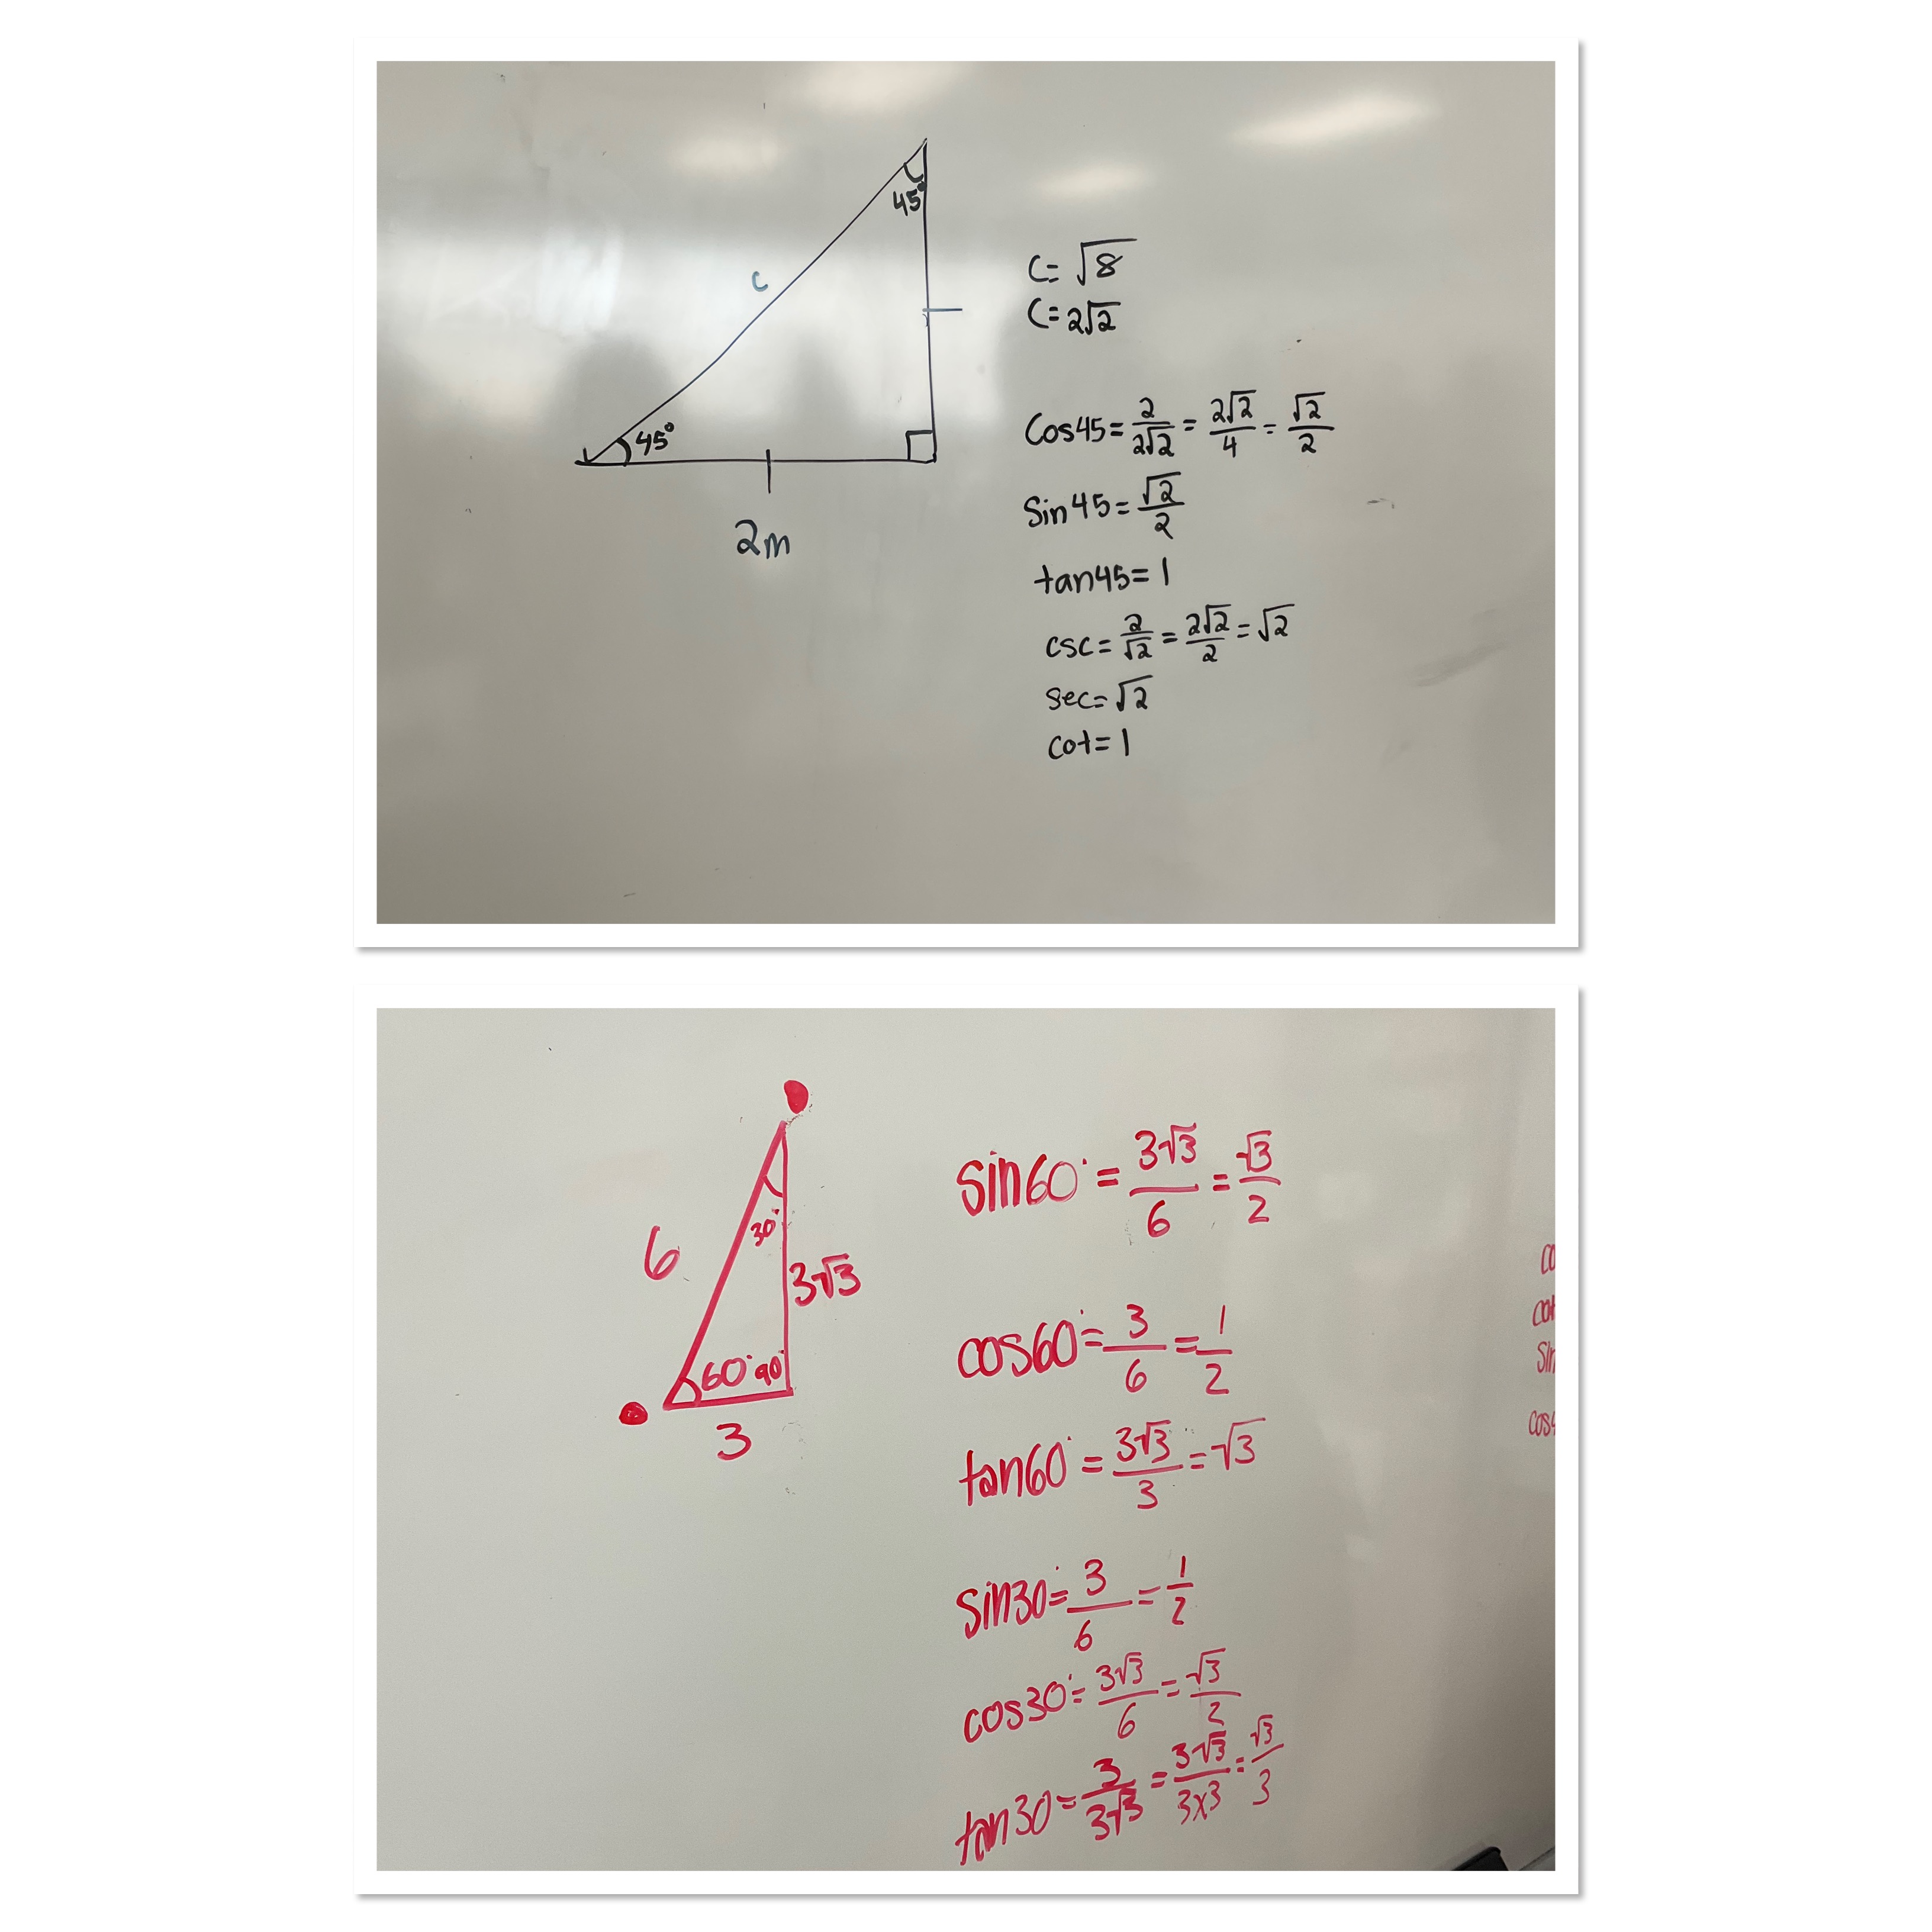 45°
C
45°
2m
C= √8
C= 2√2
Cos45= 2/2√2 = 2√2/4 = √2/2
Sin45= √2/2
tan45= 1
csc= 2/√2 = 2√2/2 = √2
sec= √2
cot= 1
30°
6
3√3
60° 90°
3
sin60° = 3√3/6 = √3/2
cos60° = 3/6 = 1/2
tan60° = 3√3/3 = √3
sin30° = 3/6 = 1/2
cos30° = 3√3/6 = √3/2
tan30 = 3/3√3 = 3√3/3x3 = √3/3